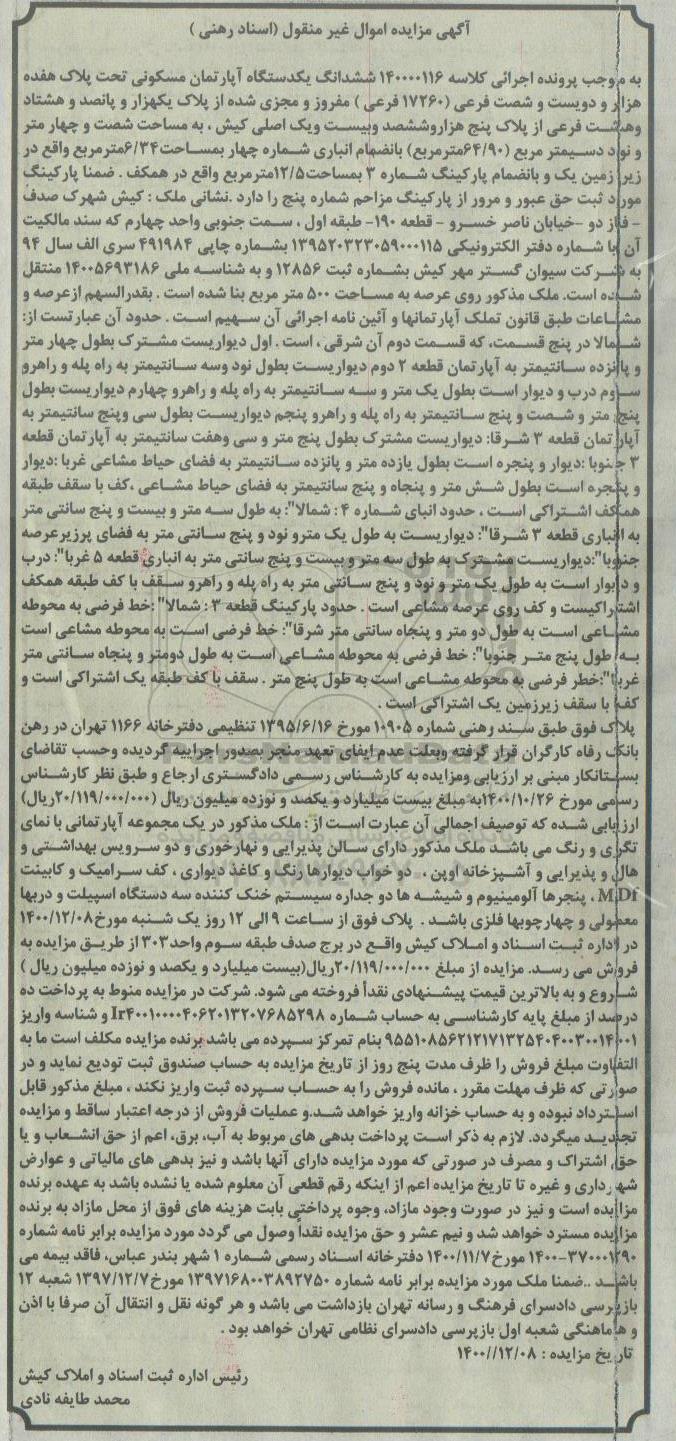 آگهی مزایده اموال غیر منقول (اسناد رهنی )
به موجب پرونده اجرائی کلاسه ۱۴۰۰۰۰۱۱۶ ششدانگ یکدستگاه آپارتمان مسکونی تحت پلاک هفده
هزار و دویست و شصت فرعی (۱۷۲۶۰ فرعی ) مفروز و مجزی شده از پلاک یکهزار و پانصد و هشتاد
وهشت فرعی از پلاک پنج هزاروششصد وبیست ویک اصلی کیش ، به مساحت شصت و چهار متر
و نود دسیمتر مربع (۶۴/۹۰مترمربع) بانضمام انباری شماره چهار بمساحت۶/۳۴مترمربع واقع در
زیر زمین یک و بانضمام پارکینگ شماره ۳ بمساحت۱۲/۵مترمربع واقع در همکف . ضمنا پارکینگ
مورد ثبت حق عبور و مرور از پارکینگ مزاحم شماره پنج را دارد .نشانی ملک : کیش شهرک صدف
- فاز دو -خیابان ناصر خسرو - قطعه ۱۹۰- طبقه اول ، سمت جنوبی واحد چهارم که سند مالکیت
آن با شماره دفتر الکترونیکی ۱۳۹۵۲۰۳۲۳۰۵۹۰۰۰۱۱۵ بشماره چاپی ۴۹۱۹۸۴ سری الف سال ۹۴
به شرکت سیوان گستر مهر کیش بشماره ثبت ۱۲۸۵۶ و به شناسه ملی ۱۴۰۰۵۶۹۳۱۸۶ منتقل
شده است. ملک مذکور روی عرصه به مساحت ۵۰۰ متر مربع بنا شده است . بقدرالسهم ازعرصه و
مشاعات طبق قانون تملک آپارتمانها و آئین نامه اجرائی آن سهیم است . حدود آن عبارتست از:
شمالا در پنج قسمت، که قسمت دوم آن شرقی ، است . اول دیواریست مشترک بطول چهار متر
و پانزده سانتیمتر به آپارتمان قطعه ۲ دوم دیواریست بطول نود وسه سانتیمتر به راه پله و راهرو
سوم درب و دیوار است بطول یک متر و سه سانتیمتر به راه پله و راهرو چهارم دیواریست بطول
پنج متر و شصت و پنج سانتیمتر به راه پله و راهرو پنجم دیواریست بطول سی وپنج سانتیمتر به
آپارتمان قطعه ۳ شرقا: دیواریست مشترک بطول پنج متر و سی وهفت سانتیمتر به آپارتمان قطعه
۳ جنوبا :دیوار و پنجره است بطول یازده متر و پانزده سانتیمتر به فضای حیاط مشاعی غربا :دیوار
و پنجره است بطول شش متر و پنجاه و پنج سانتیمتر به فضای حیاط مشاعی ،کف با سقف طبقه
همکف اشتراکی است ، حدود انبای شماره ۴ : شمالا": به طول سه متر و بیست و پنج سانتی متر
به انباری قطعه ۳ شرقا": دیواریست به طول یک مترو نود و پنج سانتی متر به فضای پرزیرعرصه
جنوبا":دیواریست مشترک به طول سه متر و بیست و پنج سانتی متر به انباری قطعه ۵ غربا": درب
و دیوار است به طول یک متر و نود و پنج سانتی متر به راه پله و راهرو سقف با کف طبقه همکف
اشتراکیست و کف روی عرصه مشاعی است . حدود پارکینگ قطعه ۳ : شمالا" :خط فرضی به محوطه
مشاعی است به طول دو متر و پنجاه سانتی متر شرقا": خط فرضی است به محوطه مشاعی است
به طول پنج متر جنوبا": خط فرضی به محوطه مشاعی است به طول دومتر و پنجاه سانتی متر
غربا":خطر فرضی به محوطه مشاعی است به طول پنج متر . سقف با کف طبقه یک اشتراکی است و
کف با سقف زیرزمین یک اشتراکی است .
پلاک فوق طبق سند رهنی شماره ۱۰۹۰۵ مورخ ۱۳۹۵/۶/۱۶ تنظیمی دفترخانه ۱۱۶۶ تهران در رهن
بانک رفاه کارگران قرار گرفته وبعلت عدم ایفای تعهد منجر بصدور اجراییه گردیده وحسب تقاضای
بستانکار مبنی بر ارزیابی ومزایده به کارشناس رسمی دادگستری ارجاع و طبق نظر کارشناس
رسمی مورخ ۱۴۰۰/۱۰/۲۶به مبلغ بیست میلیارد و یکصد و نوزده میلیون ریال (۲۰/۱۱۹/۰۰۰/۰۰۰ریال)
ارزیابی شده که توصیف اجمالی آن عبارت است از : ملک مذکور در یک مجموعه آپارتمانی با نمای
تگری و رنگ می باشد ملک مذکور دارای سالن پذیرایی و نهارخوری و دو سرویس بهداشتی و
هال و پذیرایی و آشپزخانه اوپن ، دو خواب دیوارها رنگ و کاغذ دیواری ، کف سرامیک و کابینت
MDf ، پنجرها آلومینیوم و شیشه ها دو جداره سیستم خنک کننده سه دستگاه اسپیلت و دربها
معمولی و چهارچوبها فلزی باشد . پلاک فوق از ساعت ۹ الی ۱۲ روز یک شنبه مورخ۱۴۰۰/۱۲/۰۸
در اداره ثبت اسناد و املاک کیش واقع در برج صدف طبقه سوم واحد۳۰۳ از طریق مزایده به
فروش می رسد. مزایده از مبلغ ۲۰/۱۱۹/۰۰۰/۰۰۰ریال(بیست میلیارد و یکصد و نوزده میلیون ریال )
شروع و به بالاترین قیمت پیشنهادی نقداً فروخته می شود. شرکت در مزایده منوط به پرداخت ده
درصد از مبلغ پایه کارشناسی به حساب شماره Ir۴۰۰۱۰۰۰۰۴۰۶۲۰۱۳۲۰۷۶۸۵۲۹۸ و شناسه واریز
۹۵۵۱۰۸۵۶۲۱۲۱۷۱۳۲۵۴۰۴۰۰۳۰۰۱۴۰۰۱ بنام تمرکز سپرده می باشد برنده مزایده مکلف است ما به
التفاوت مبلغ فروش را ظرف مدت پنج روز از تاریخ مزایده به حساب صندوق ثبت تودیع نماید و در
صورتی که ظرف مهلت مقرر ، مانده فروش را به حساب سپرده ثبت واریز نکند ، مبلغ مذکور قابل
استرداد نبوده و به حساب خزانه واریز خواهد شد.و عملیات فروش از درجه اعتبار ساقط و مزایده
تجدید میگردد. لازم به ذکر است پرداخت بدهی های مربوط به آب، برق، اعم از حق انشعاب و یا
حق اشتراک و مصرف در صورتی که مورد مزایده دارای آنها باشد و نیز بدهی های مالیاتی و عوارض
شهرداری و غیره تا تاریخ مزایده اعم از اینکه رقم قطعی آن معلوم شده یا نشده باشد به عهده برنده
مزایده است و نیز در صورت وجود مازاد، وجوه پرداختی بابت هزینه های فوق از محل مازاد به برنده
مزایده مسترد خواهد شد و نیم عشر و حق مزایده نقداً وصول می گردد مورد مزایده برابر نامه شماره
۱۴۰۰-۳۷۰۰۰۱۲۹۰ مورخ۱۴۰۰/۱۱/۷ دفترخانه اسناد رسمی شماره ۱ شهر بندر عباس، فاقد بیمه می
باشد ..ضمنا ملک مورد مزایده برابر نامه شماره ۱۳۹۷۱۶۸۰۰۳۸۹۲۷۵۰ مورخ۱۳۹۷/۱۲/۷ شعبه ۱۲
بازپرسی دادسرای فرهنگ و رسانه تهران بازداشت می باشد و هر گونه نقل و انتقال آن صرفا با اذن
و هماهنگی شعبه اول بازپرسی دادسرای نظامی تهران خواهد بود .
تاریخ مزایده : ۱۴۰۰//۱۲/۰۸
رئیس اداره ثبت اسناد و املاک کیش
محمد طایفه نادی